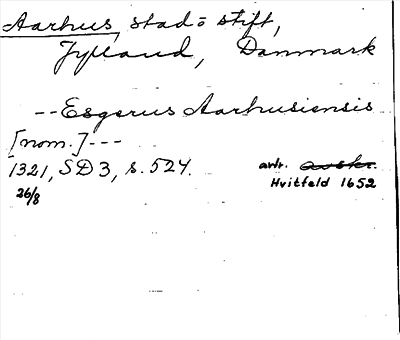 Aarhus, stad o stift,
Jylland, Danmark
--Esgerus Aarhusiensis
[nom.]---
1321, SD 3, s. 524. avtr.
26/8 Hvitfeld 1652